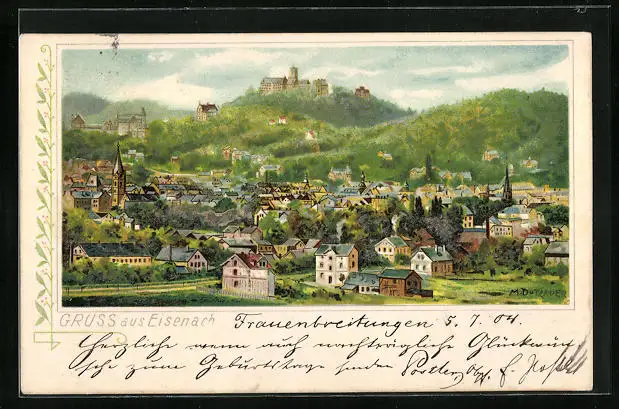 M. Dutzauer
GRUSS aus Eisenach
Frauenbreitungen 5. 7. 04.
Herzliche wenn auch nachträgliche Glückwün
sche zum Geburtstage senden